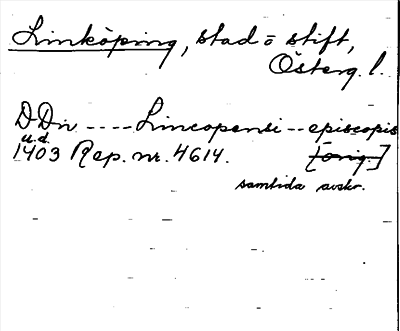 Linköping, stad o stift,
Österg. l.
D Dn ---- Lincopensi -- episcopis
u.d.
1403 Rep. nr. 4614. [orig.]
samtida avskr.